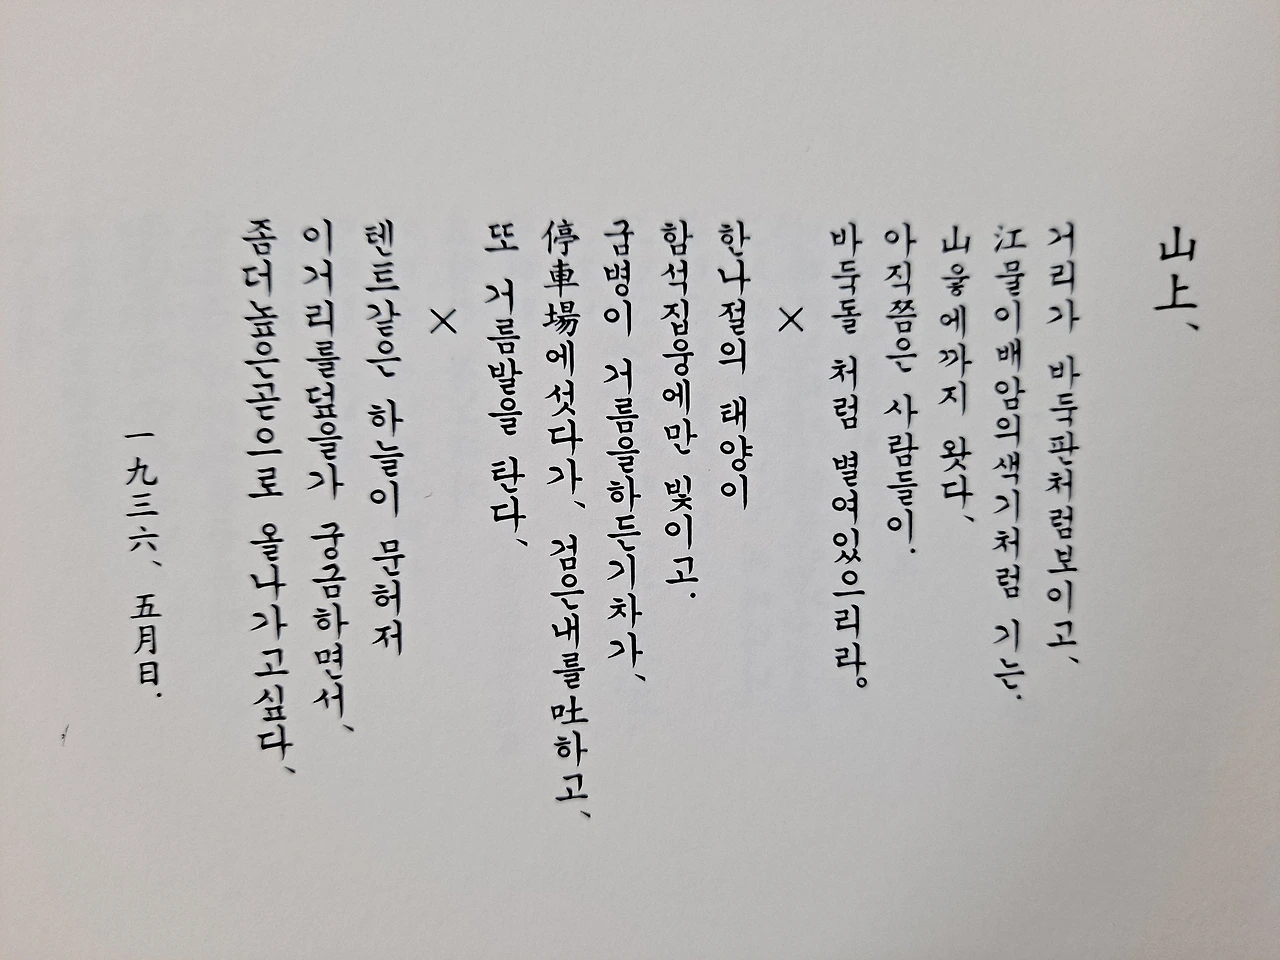 山上、
거리가 바둑판처럼보이고、
江물이배암의색기처럼 기는.
山웋에까지 왓다、
아직쯤은 사람들이.
바둑돌 처럼 별여있으리라。
한나절의 태양이
함석집웅에만 빛이고.
굼병이 거름을하든기차가、
停車場에섯다가、검은내를吐하고、
또 거름발을 탄다、
×
텐트같은 하늘이 문허저
이거리를덮을가 궁금하면서、
좀더높은곧으로 올나가고싶다、
一九三六、五月日.